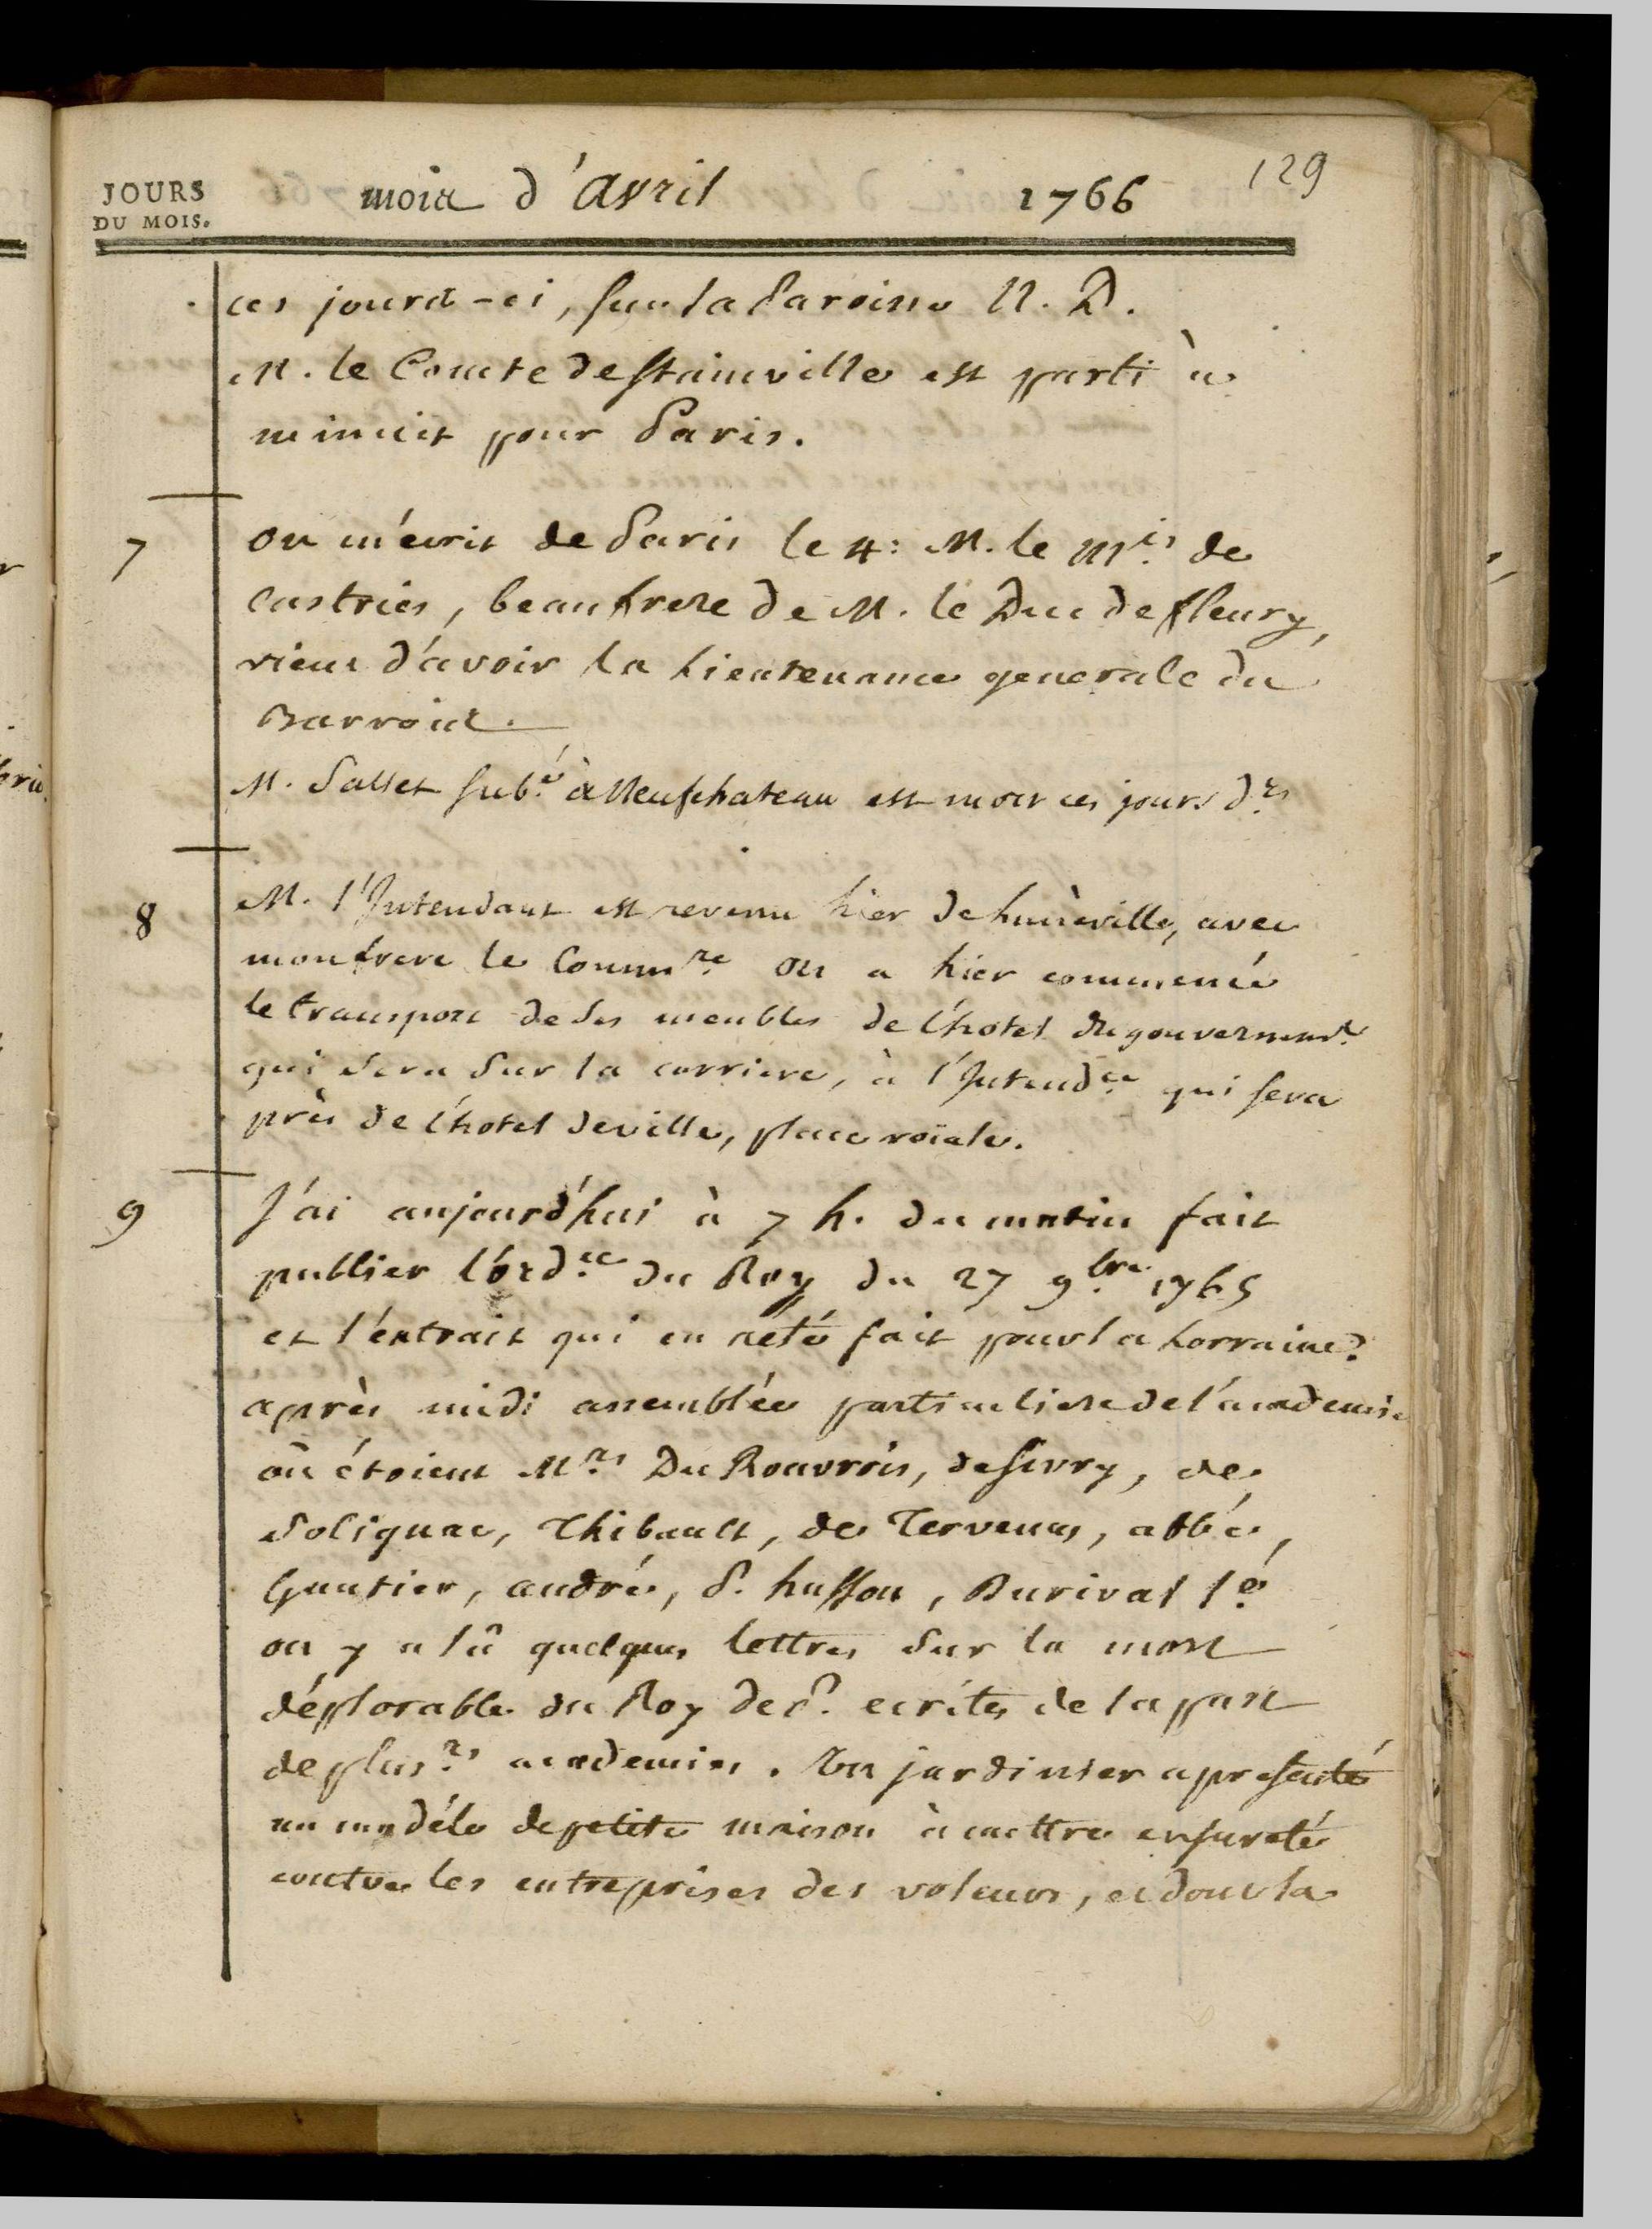 129
JOURS DU MOIS. mois d'Avril 1766
ces jours-ci, sur la Paroisse N. D.
M. le Comte de Stainville est parti à
minuit pour Paris.
7 on m'ecrit de Paris le 4: M. le Mis. de
Castries, beaufrere de M. le Duc de fleury,
vient d'avoir la Lieutenance generale du
Barrois.
M. Sallet subé. à Neufchateau est mort ces jours drs.
8 M. l'Intendant est revenu hier de Lunéville, avec
mon frere le Commre. on a hier commencé
le transport de ses meubles de l'hotel du gouvernemt.
qui sera sur la carriere, à l'Intendce. qui sera
près de l'hotel de ville, place roïale.
9 J'ai aujourd'hui à 7 h. du matin fait
publier l'ordce. du Roy du 27 9bre. 1765
et l'extrait qui en a été fait pour la Lorraine.
après midi assemblée particuliere de l'academie
où étoient Mrs. Du Rouvrois, de Sivry, de
Solignac, Thibault, de Tervenus, abbé,
Gautier, andré, P. husson, Durival l'é.
on y a lû quelques lettres sur la mort
déplorable du Roy de P. ecrites de la part
de plusrs. academies. Un jardinier a presenté
un modéle de petite maison à mettre en sureté
contre les entreprises des voleurs, et dont la